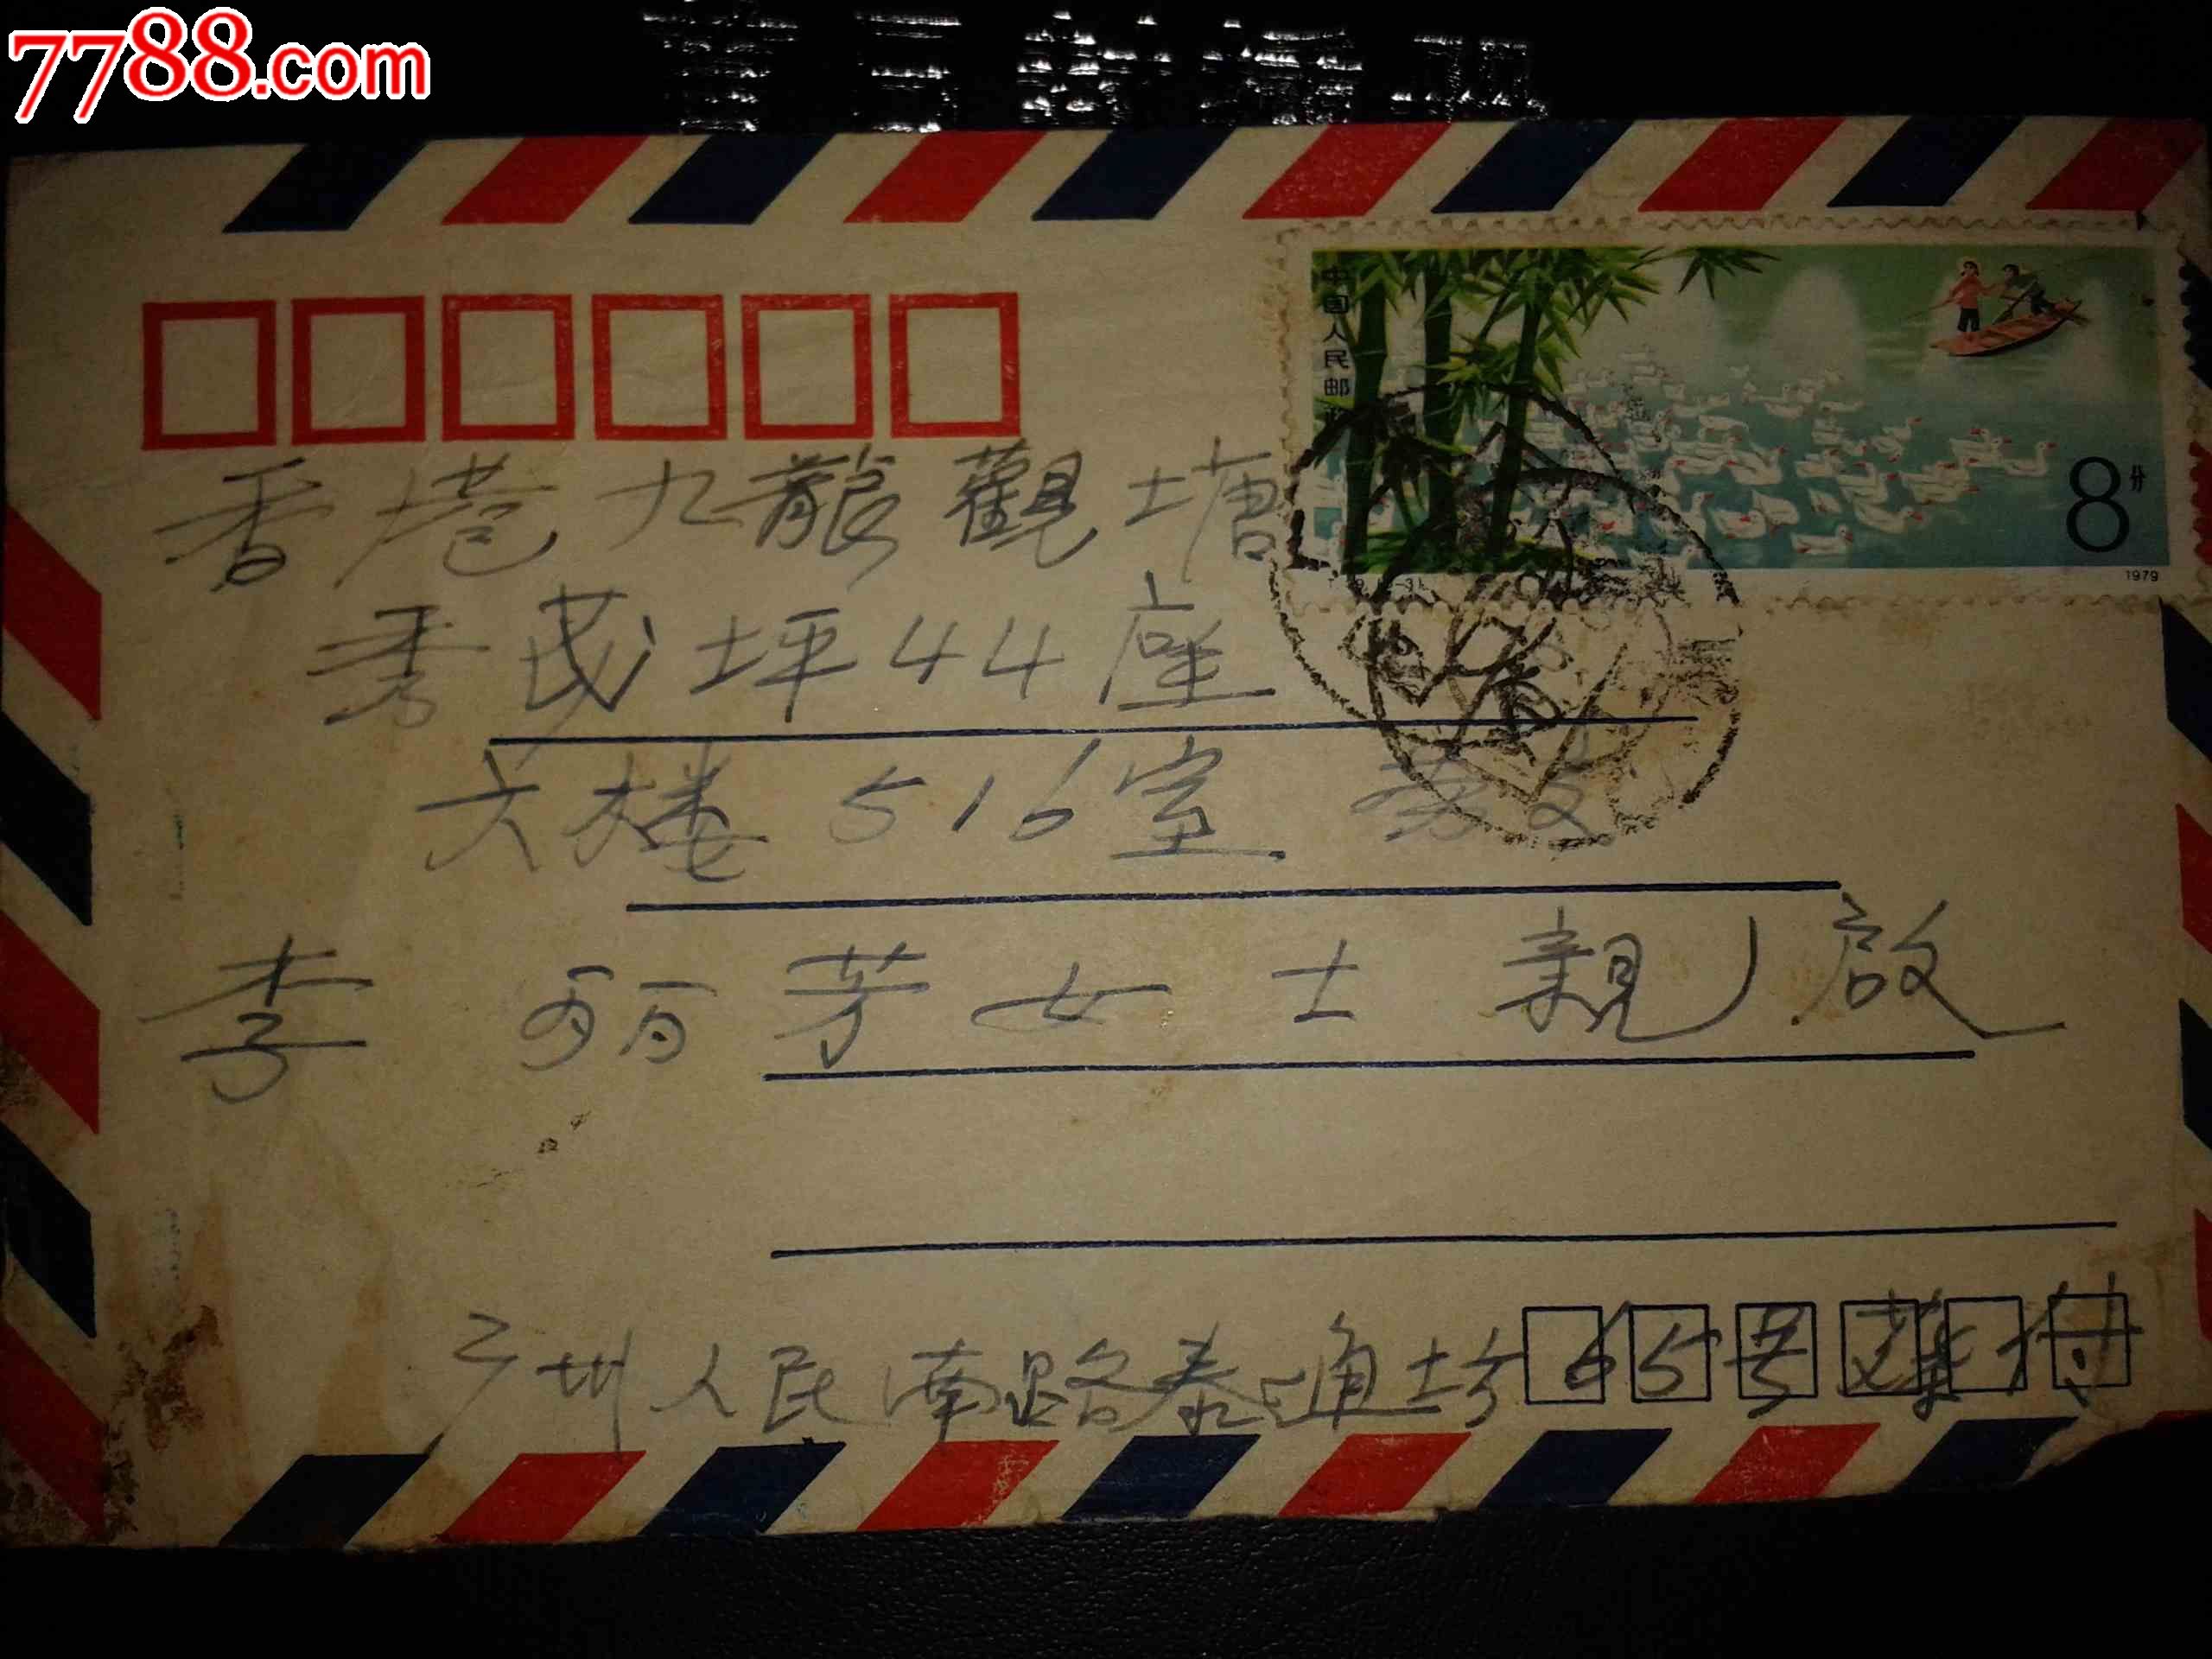 7788.com
中国人民邮政
8分
1979
香港九龍觀塘
秀茂坪44座
六楼516室 劳交
李丽芳女士親啟
广州人民南路泰通坊65号蔡付